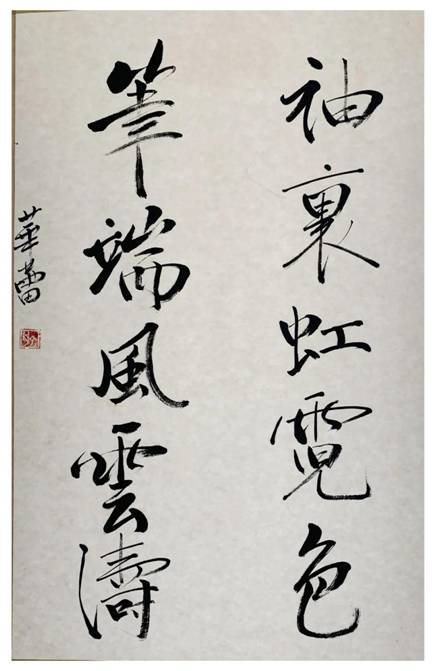 袖裏虹霓色
筆端風雲濤
華蕾